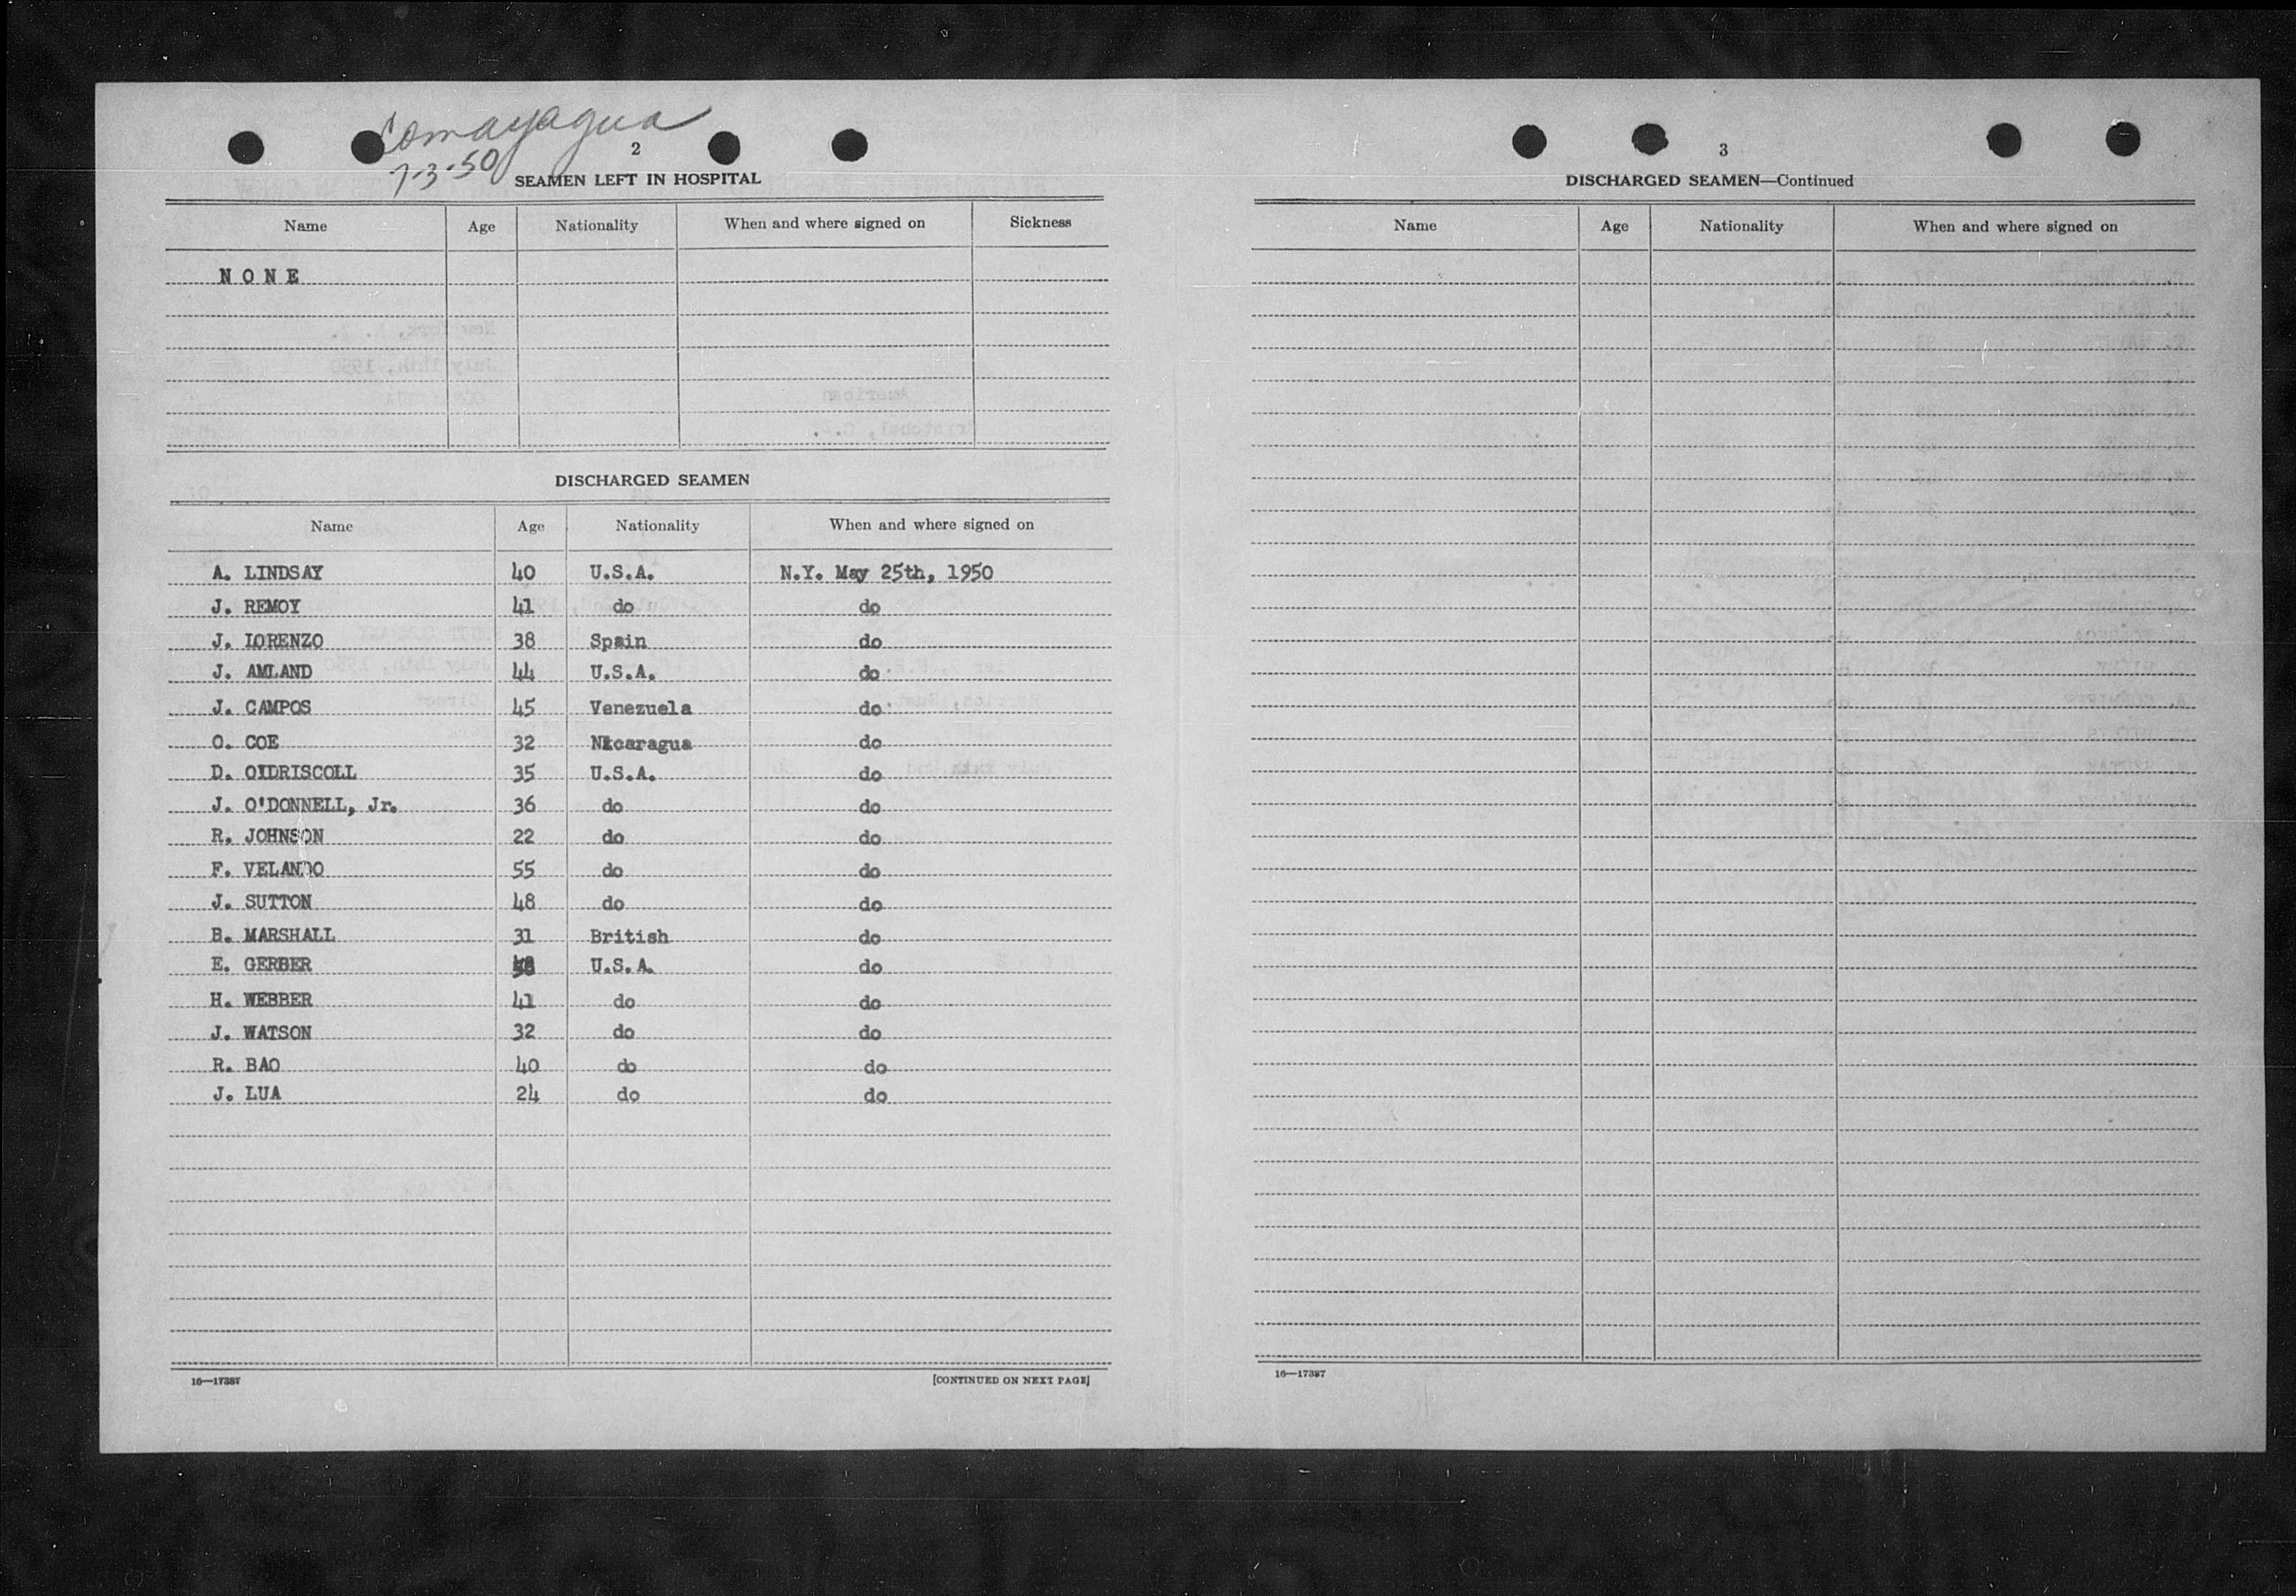 Comayagua
7-3-50
2
SEAMEN LEFT IN HOSPITAL
Name Age Nationality When and where signed on Sickness
NONE
DISCHARGED SEAMEN
Name Age Nationality When and where signed on
A. LINDSAY 40 U.S.A. N.Y. May 25th, 1950
J. REMOY 41 do do
J. LORENZO 38 Spain do
J. AMLAND 44 U.S.A. do
J. CAMPOS 45 Venezuela do
O. COE 32 Nicaragua do
D. O'DRISCOLL 35 U.S.A. do
J. O'DONNELL, Jr. 36 do do
R. JOHNSON 22 do do
F. VELANDO 55 do do
J. SUTTON 48 do do
B. MARSHALL 31 British do
E. GERBER U.S.A. do
H. WEBBER 41 do do
J. WATSON 32 do do
R. BAO 40 do do
J. LUA 24 do do
16—17387 [CONTINUED ON NEXT PAGE]
3
DISCHARGED SEAMEN—Continued
Name Age Nationality When and where signed on
16—17387